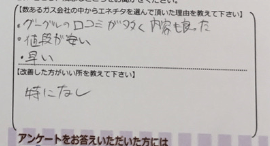 【数あるガス会社の中からエネチタを選んで頂いた理由を教えて下さい】
・グーグルの口コミが多く内容も良った
・値段が安い
・早い
【改善した方がいい所を教えて下さい】
特になし
アンケートをお答えいただいた方には